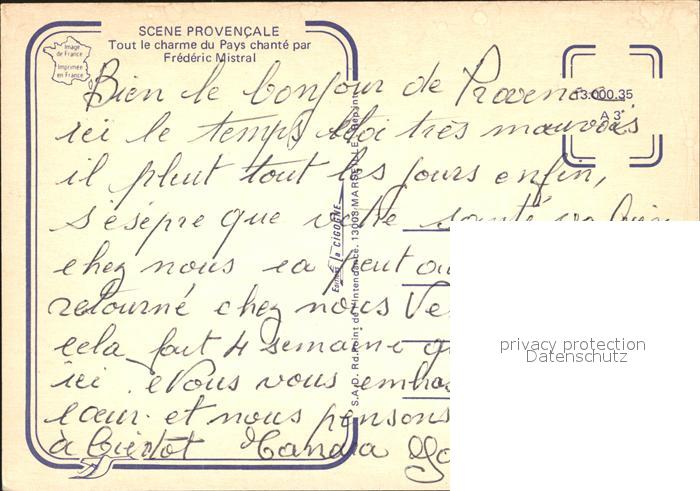 SCENE PROVENÇALE
Tout le charme du Pays chanté par
Frédéric Mistral
Image
de France
Imprimée
en France
13.000.35
A 3
Bien le bonjour de Provence
ici le temps très mauvais
il pleut tout les jours enfin,
s'ésépre que votre santé va bien
chez nous sa peut
retourné chez nous
cela fait 4 semaine
ici. Nous vous
cœur et nous pensons
à bientot
Editions la CIGOGNE
S.A.D. Rd. Point de l'Intendance. 13003 MARSEILLE
privacy protection
Datenschutz